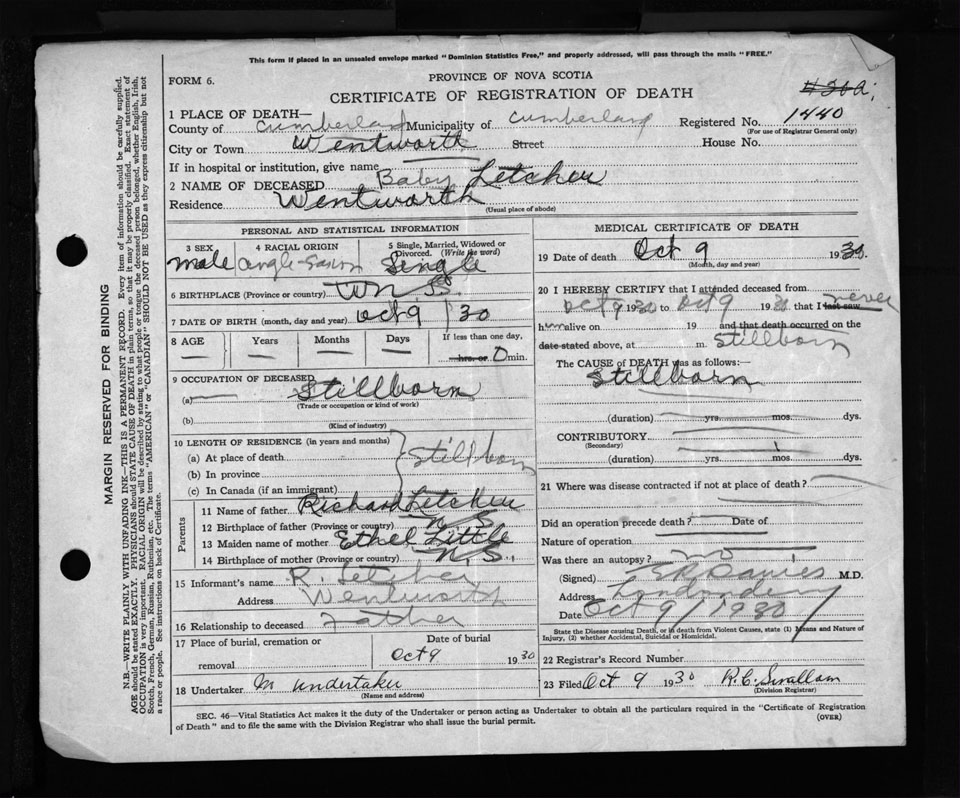 This form if placed in an unsealed envelope marked "Dominion Statistics Free," and properly addressed, will pass through the mails "FREE."
FORM 6.
PROVINCE OF NOVA SCOTIA
CERTIFICATE OF REGISTRATION OF DEATH
1 PLACE OF DEATH—
County of Cumberland Municipality of Cumberland Registered No. 1440
(For use of Registrar General only)
City or Town Wentworth Street House No.
If in hospital or institution, give name
2 NAME OF DECEASED Baby Letcher
Residence Wentworth
(Usual place of abode)
PERSONAL AND STATISTICAL INFORMATION
3 SEX 4 RACIAL ORIGIN 5 Single, Married, Widowed or Divorced. (Write the word)
male Anglo-Saxon Single
6 BIRTHPLACE (Province or country) N.S.
7 DATE OF BIRTH (month, day and year) Oct 9 /30
8 AGE Years Months Days If less than one day,
— — — — hrs. or 0 min.
9 OCCUPATION OF DECEASED
(a) Stillborn
(Trade or occupation or kind of work)
(b)
(Kind of industry)
10 LENGTH OF RESIDENCE (in years and months)
(a) At place of death
(b) In province Stillborn
(c) In Canada (if an immigrant)
Parents
11 Name of father Richard Letcher
12 Birthplace of father (Province or country) N.S
13 Maiden name of mother Ethel Little
14 Birthplace of mother (Province or country) N.S.
15 Informant's name R. Letcher
Address Wentworth
16 Relationship to deceased Father
17 Place of burial, cremation or removal Date of burial
Oct 9 1930
18 Undertaker No undertaker
(Name and address)
MEDICAL CERTIFICATE OF DEATH
19 Date of death Oct 9 1930.
(Month, day and year)
20 I HEREBY CERTIFY that I attended deceased from
Oct 9 1930 to Oct 9 1930 that I last saw never
him alive on 19 and that death occurred on the
date stated above, at m. Stillborn
The CAUSE of DEATH was as follows:—
Stillborn
(duration) yrs. mos. dys.
CONTRIBUTORY
(Secondary)
(duration) yrs. mos. dys.
21 Where was disease contracted if not at place of death?
Did an operation precede death? Date of
Nature of operation
Was there an autopsy? no
(Signed) Davies M.D.
Address Londonderry
Date Oct 9/1930
State the Disease causing Death, or in death from Violent Causes, state (1) Means and Nature of Injury, (2) whether Accidental, Suicidal or Homicidal.
22 Registrar's Record Number
23 Filed Oct 9 1930 R.C. Swallow
(Division Registrar)
SEC. 46—Vital Statistics Act makes it the duty of the Undertaker or person acting as Undertaker to obtain all the particulars required in the "Certificate of Registration
of Death" and to file the same with the Division Registrar who shall issue the burial permit.
(OVER)
MARGIN RESERVED FOR BINDING
N.B.—WRITE PLAINLY WITH UNFADING INK—THIS IS A PERMANENT RECORD. Every item of information should be carefully supplied.
AGE should be stated EXACTLY. PHYSICIANS should STATE CAUSE OF DEATH in plain terms, so that it may be properly classified. Exact statement of
OCCUPATION is very important. RACIAL ORIGIN will be described by stating to what people or tongue the deceased person belonged, whether English, Irish,
Scotch, French, German, Russian, Ruthenian, etc. The terms "AMERICAN" or "CANADIAN" SHOULD NOT BE USED as they express citizenship but not
a race or people. See instructions on back of Certificate.